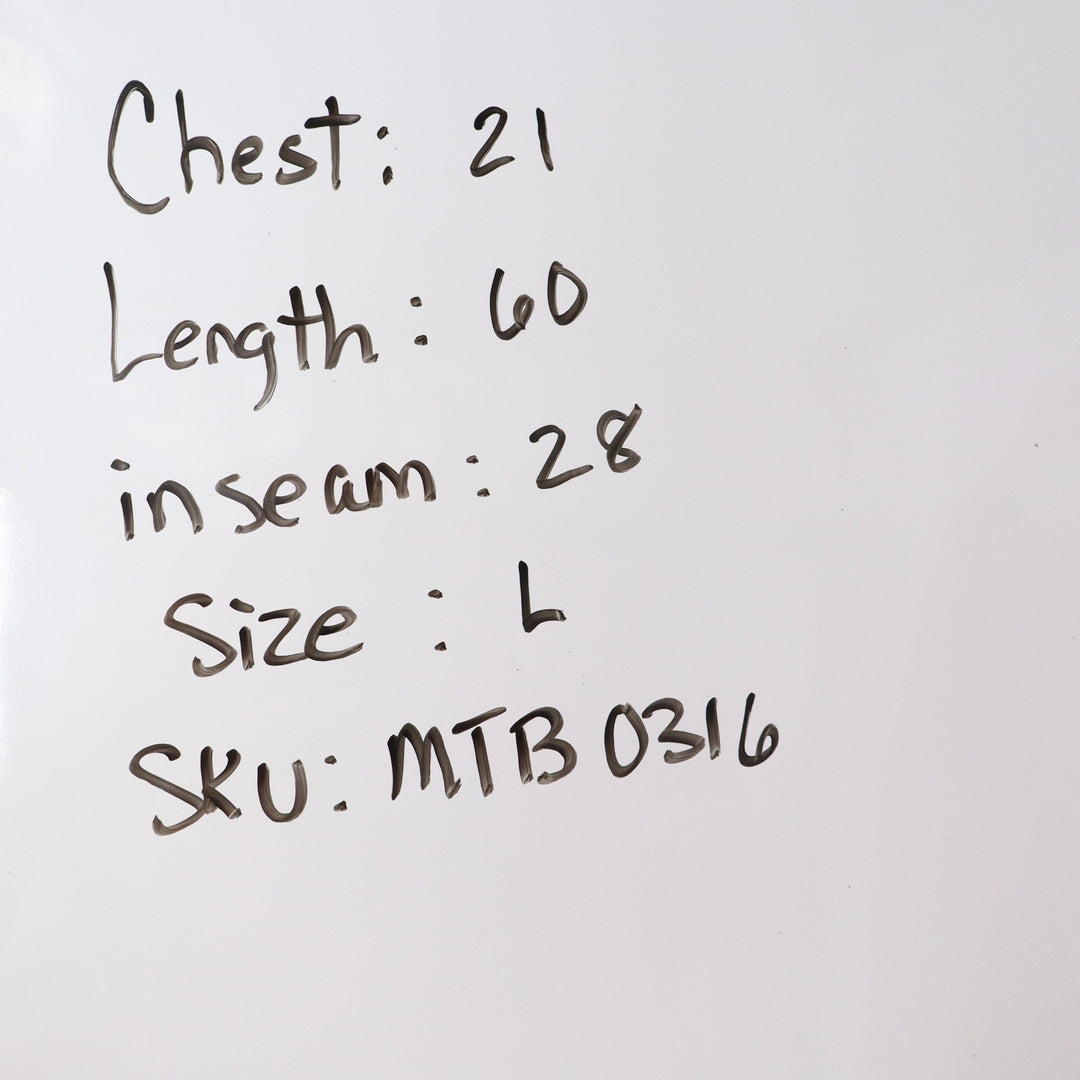 Chest: 21
Length: 60
inseam: 28
Size: L
SKU: MTB0316